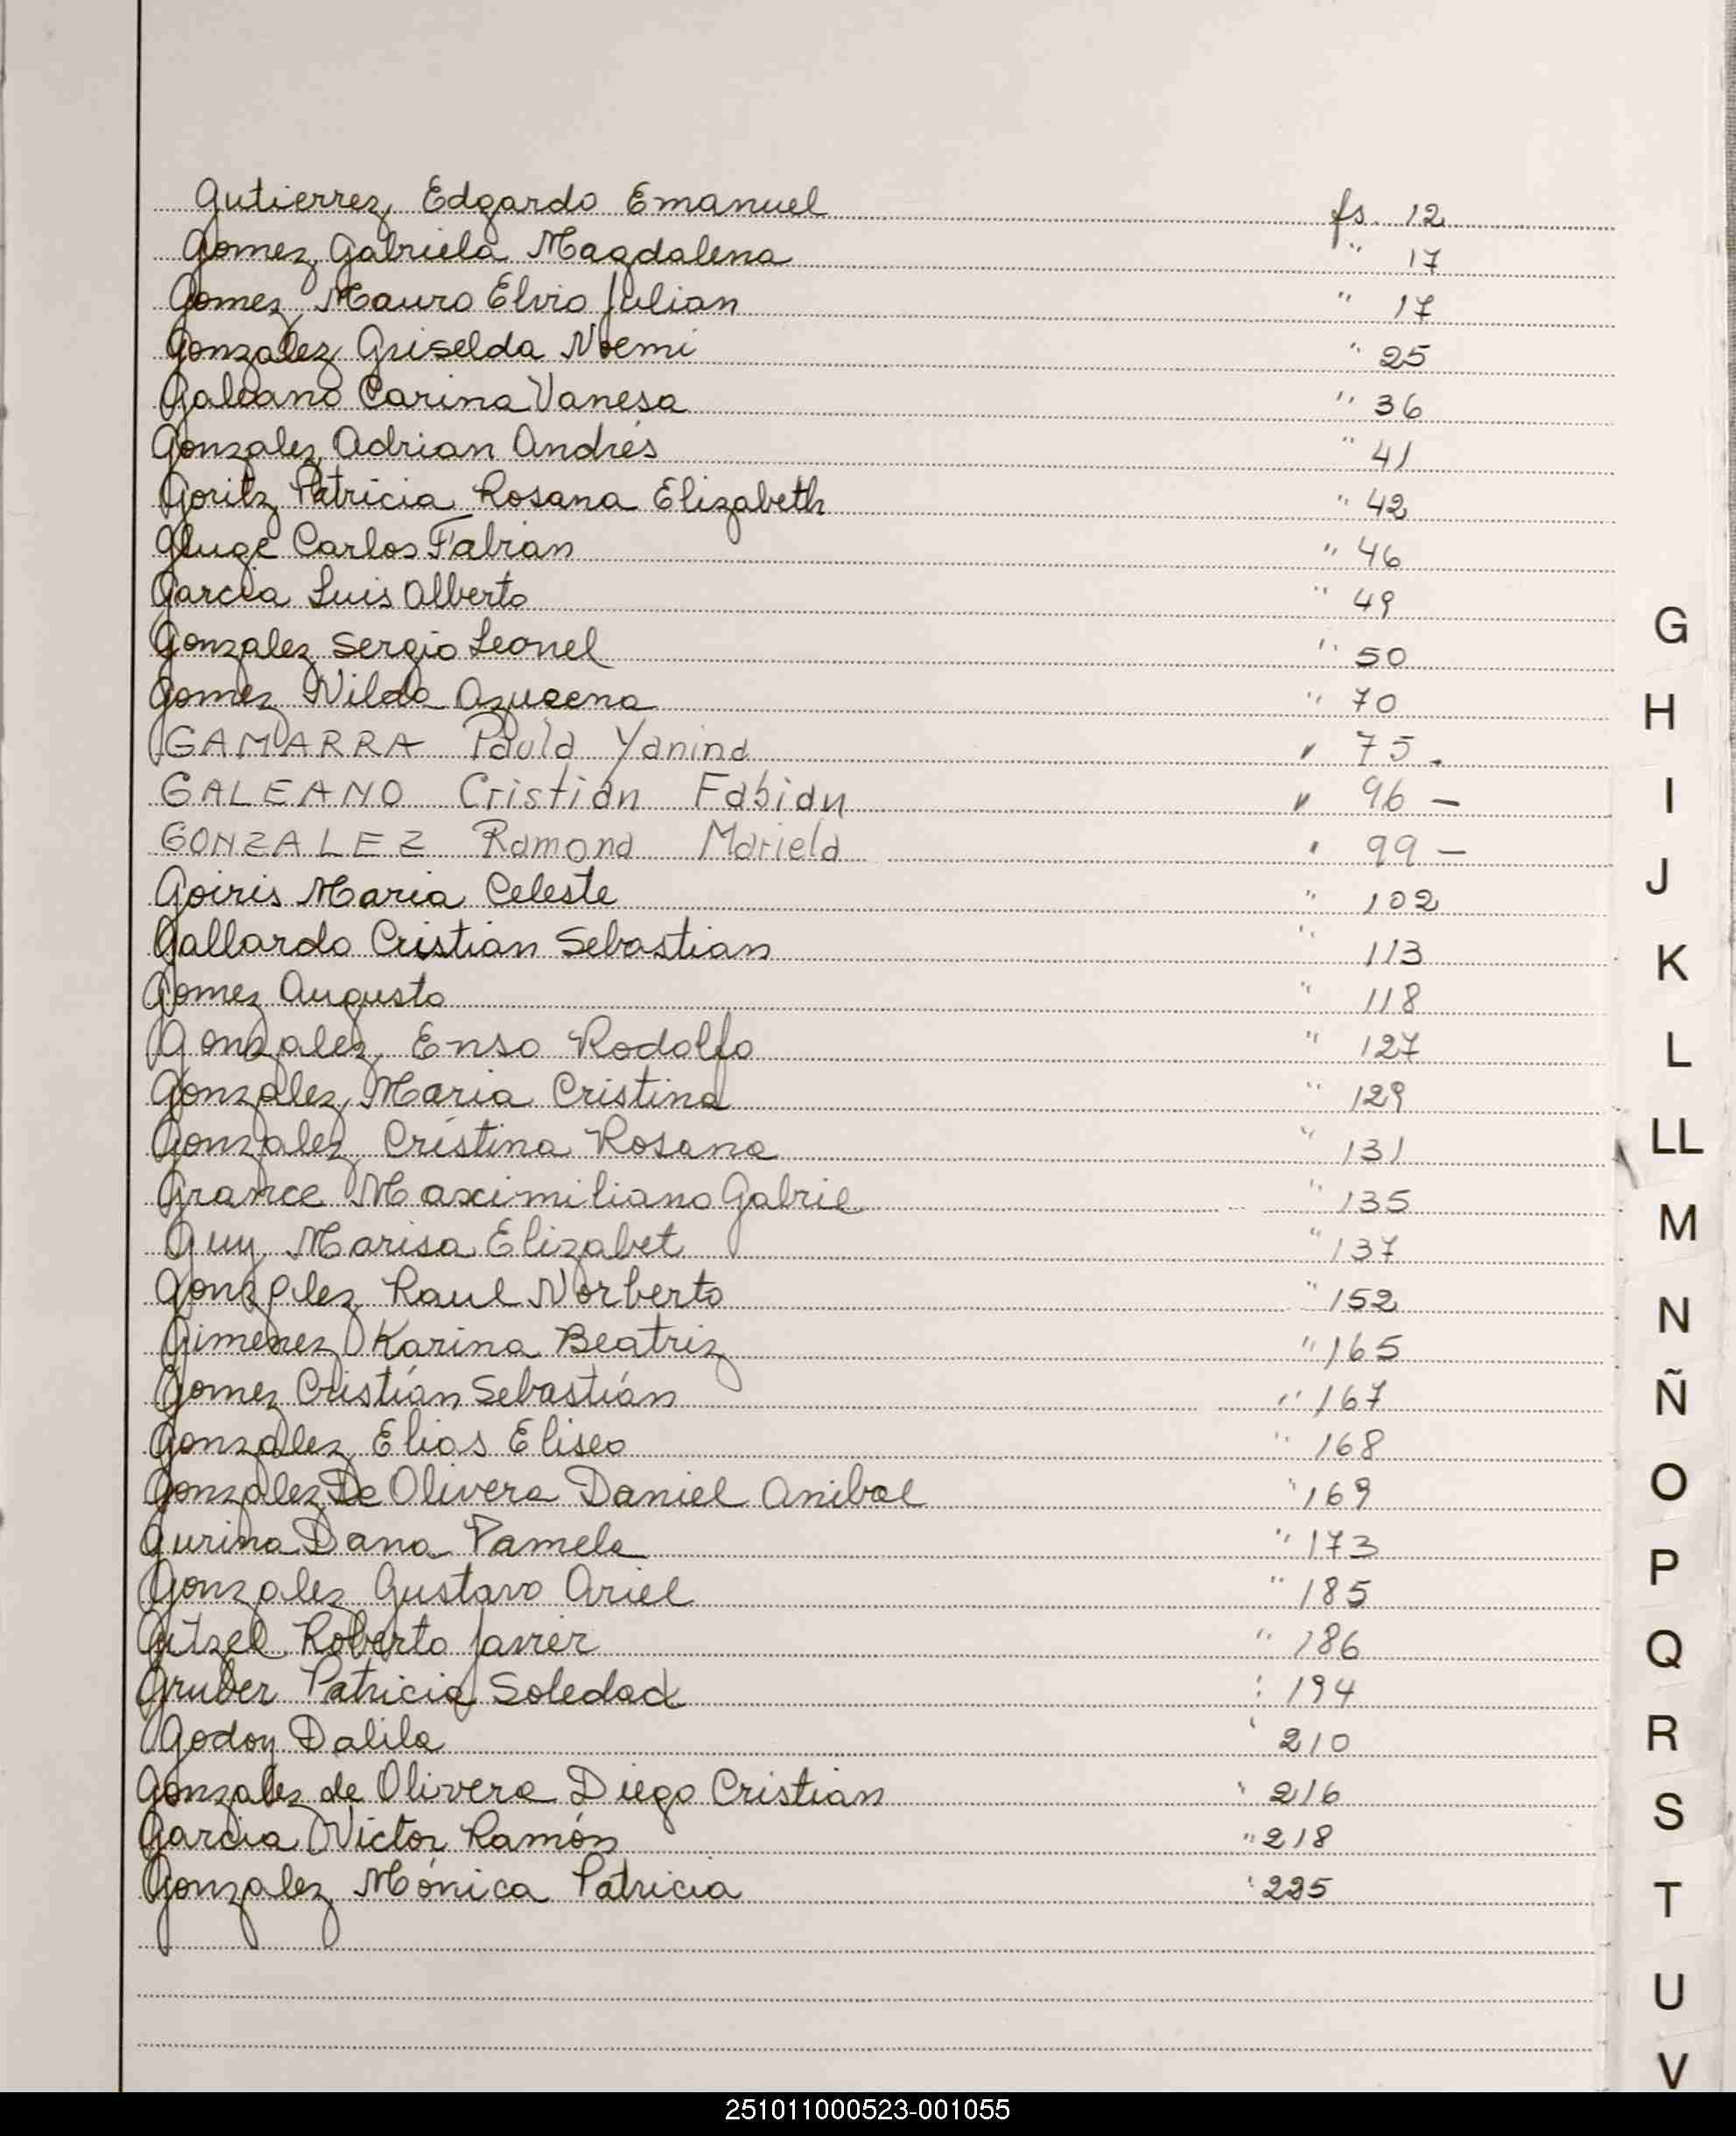 Gutierrez Edgardo Emanuel fs. 12
Gomez Gabriela Magdalena " 17
Gomez Mauro Elvio Julian " 17
Gonzalez Griselda Noemi " 25
Galeano Carina Vanesa " 36
Gonzalez Adrian Andrés " 41
Goritz Patricia Rosana Elizabeth " 42
Gluge Carlos Fabian " 46
Garcia Luis Alberto " 49
Gonzalez Sergio Leonel " 50
Gomez Nilda Azucena " 70
GAMARRA Paula Yanina " 75.
GALEANO Cristian Fabian " 96 —
GONZALEZ Ramona Mariela " 99 —
Goiris Maria Celeste " 102
Gallardo Cristian Sebastian " 113
Gomez Augusto " 118
Gonzalez Enso Rodolfo " 127
Gonzalez Maria Cristina " 129
Gonzalez Cristina Rosana " 131
Grance Maximiliano Gabriel " 135
Guy Marisa Elizabet " 137
Gonzalez Raul Norberto " 152
Gimenez Karina Beatriz " 165
Gomez Cristián Sebastián " 167
Gonzalez Elias Eliseo " 168
Gonzalez De Olivera Daniel Anibal " 169
Gurina Dana Pamela " 173
Gonzalez Gustavo Ariel " 185
Gitzel Roberto Javier " 186
Gruber Patricia Soledad " 194
Godoy Dalila " 210
Gonzalez de Olivera Diego Cristian " 216
Garcia Victor Ramón " 218
Gonzalez Mónica Patricia " 225
G
H
I
J
K
L
LL
M
N
Ñ
O
P
Q
R
S
T
U
V
251011000523-001055